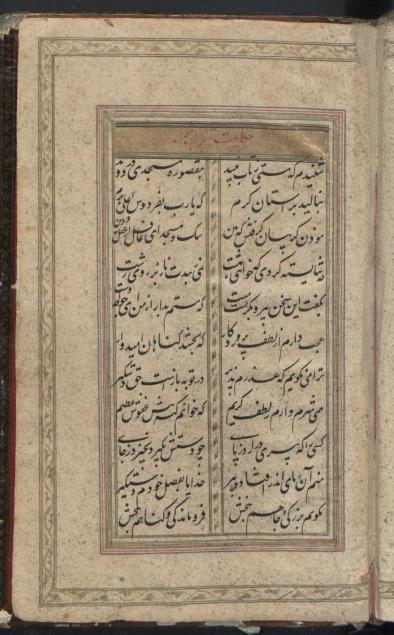 حکایت
شنیدم که مستی ز تاب نبید بمقصوره مسجدی در دوید
بنالید بر آستان کرم که یارب بفردوس اعلی برم
موذن گریبان گرفتش که هین سگ و مسجد ای غافل از عقل و دین
چه شایسته کردی که خواهی بهشت نمی زیبدت ناز بر روی زشت
بگفت این سخن پیر و بگریست مست که مستم بدار از من ای خواجه دست
عجب دارم از لطف پروردگار که بخشد گناهان امیدوار
ترا می نگویم که عذرم پذیر در توبه بازست حق دستگیر
همی شرم دارم ز لطف کریم که خوانم گنه پیش عفوش عظیم
کسی را که پیری در آرد ز پای چو دستش نگیری نخیزد ز جای
منم آن ز پای اندر افتاده پیر خدایا بفضل خودم دست گیر
نگویم بزرگی و جاهم ببخش فروماندگی و گناهم ببخش